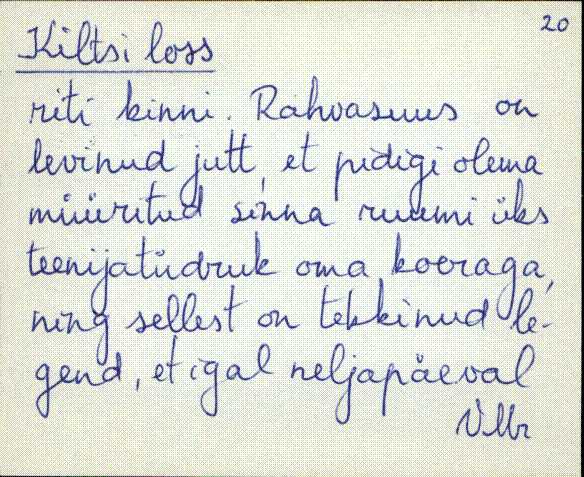 20
Kiltsi loss
riti kinni. Rahvasuus on
levinud jutt, et pidigi olema
müüritud sinna ruumi üks
teenijatüdruk oma koeraga,
ning sellest on tekkinud le-
gend, et igal neljapäeval